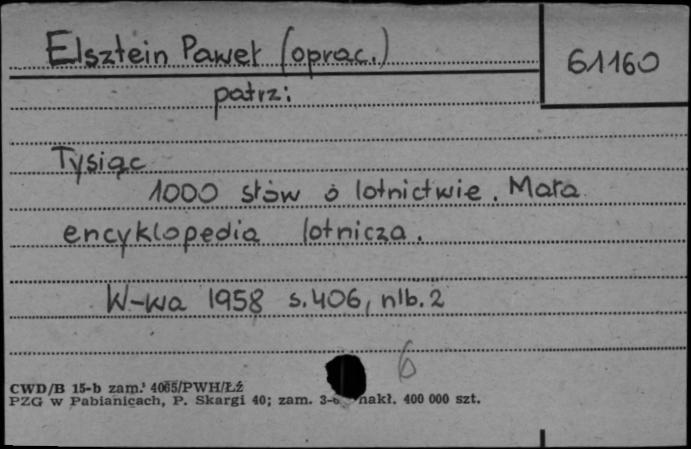 Elsztein Paweł (oprac.)
61160
patrz:
Tysiąc
1000 słów o lotnictwie. Mała
encyklopedia lotnicza.
W-wa 1958 s.406, nlb. 2
6
CWD/B 15-b zam. 4065/PWH/Łź
PZG w Pabianicach, P. Skargi 40; zam. nakł. 400 000 szt.